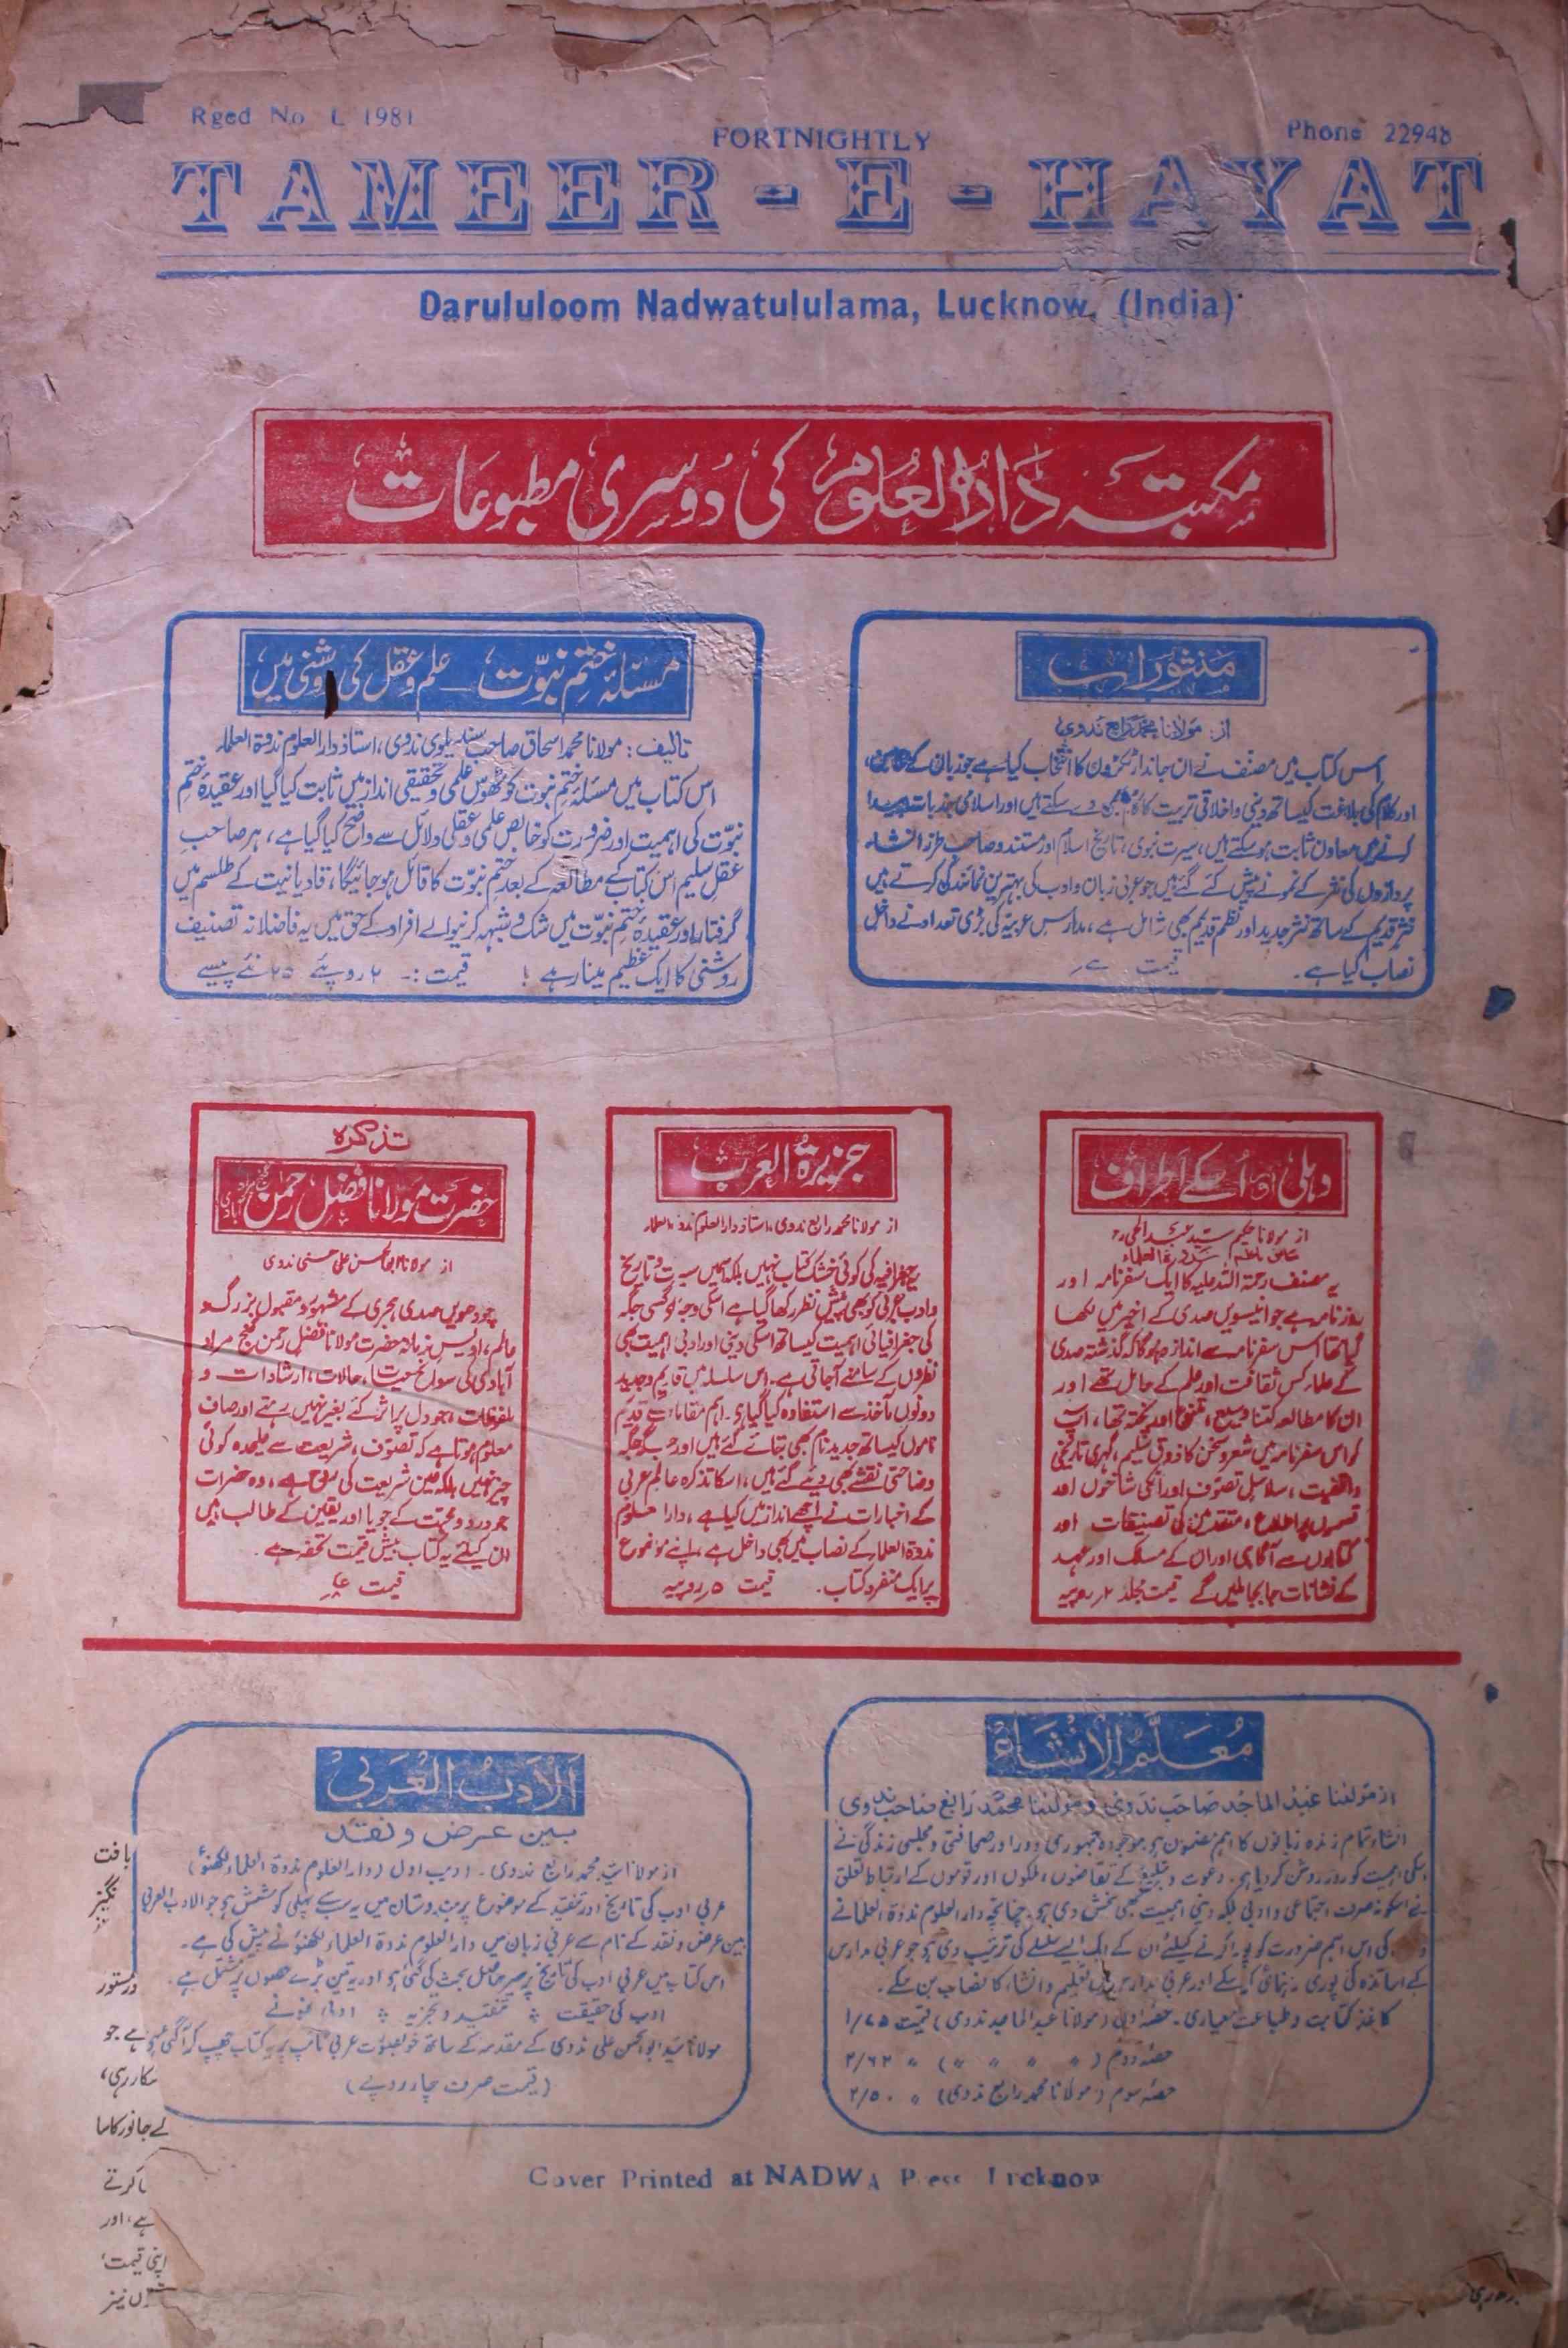 Rged No L 1981
FORTNIGHTLY
Phone 22948
TAMEER-E-HAYAT
Darululoom Nadwatululama, Lucknow. (India)
مکتبہ دارالعلوم کی دوسری مطبوعات
منثورات
از: مولانا محمد رابع ندوی
اس کتاب میں مصنف نے ان جاندار ٹکڑوں کا انتخاب کیا ہے جو زبان کے
اور کلام کی بلاغت کیساتھ دینی و اخلاقی تربیت کا کام بھی دے سکتے ہیں اور اسلامی جذبات پیدا
کرنے میں معاون ثابت ہو سکتے ہیں، سیرت نبوی، تاریخ اسلام اور مستند و صاحب طرز انشاء
پردازوں کی نثر کے نمونے پیش کئے گئے ہیں جو عربی زبان و ادب کی بہترین نمائندگی کرتے ہیں
نثر قدیم کے ساتھ نثر جدید اور نظم قدیم بھی شامل ہے، مدارس عربیہ کی بڑی تعداد نے داخل
نصاب کیا ہے۔ قیمت
مسئلہ ختم نبوّت — علم و عقل کی روشنی میں
تالیف: مولانا محمد اسحاق صاحب سندیلوی ندوی، استاذ دارالعلوم ندوۃ العلماء
اس کتاب میں مسئلہ ختم نبوت کو ٹھوس علمی و تحقیقی انداز میں ثابت کیا گیا اور عقیدۂ ختم
نبوّت کی اہمیت اور ضرورت کو خالص علمی و عقلی دلائل سے واضح کیا گیا ہے، ہر صاحب
عقل سلیم اس کتاب کے مطالعہ کے بعد ختم نبوّت کا قائل ہو جائیگا، قادیانیت کے طلسم میں
گرفتار اور عقیدۂ ختم نبوّت میں شک و شبہہ کرنیوالے افراد کے حق میں یہ فاضلانہ تصنیف
روشنی کا ایک عظیم مینار ہے ! قیمت :۔ ۲ روپئے ۲۵ نئے پیسے
دہلی اور اسکے اطراف
از مولانا حکیم سید عبد الحی رح
سابق ناظم ندوۃ العلماء
یہ مصنف رحمۃ اللہ علیہ کا ایک سفرنامہ اور
روزنامہ ہے جو انیسویں صدی کے اخیر میں لکھا
گیا تھا اس سفرنامہ سے اندازہ ہوگا کہ گذشتہ صدی
کے علماء کس ثقافت اور علم کے حامل تھے اور
ان کا مطالعہ کتنا وسیع، متنوع اور پختہ تھا، آپ
کو اس سفرنامہ میں شعر و سخن کا ذوق سلیم، گہری تاریخی
واقفیت، سلاسل تصوف اور انکی شاخوں اور
قسموں پر اطلاع، متقدمین کی تصنیفات اور
کتابوں سے آگاہی اور ان کے مسلک اور عہد
کے نشانات جابجا ملیں گے قیمت مجلد ۲ روپیہ
جزیرۃ العرب
از مولانا محمد رابع ندوی، استاذ دارالعلوم ندوۃ العلماء
یہ جغرافیہ کی کوئی خشک کتاب نہیں بلکہ اسمیں سیرت و تاریخ
و ادب عربی کو بھی پیش نظر رکھا گیا ہے اسکی وجہ تو کسی جگہ
کی جغرافیائی اہمیت کیساتھ اسکی دینی اور ادبی اہمیت بھی
نظروں کے سامنے آجاتی ہے۔ اس سلسلہ میں قدیم و جدید
دونوں مآخذ سے استفادہ کیا گیا ہے۔ اہم مقامات کے قدیم
ناموں کیساتھ جدید نام بھی بتائے گئے ہیں اور جگہ جگہ
وضاحتی نقشے بھی دیئے گئے ہیں، اسکا تذکرہ عالم عربی
کے اخبارات نے اچھے انداز میں کیا ہے، دارالعلوم
ندوۃ العلماء کے نصاب میں بھی داخل ہے، اپنے موضوع
پر ایک منفرد کتاب۔ قیمت ۵ روپیہ
تذکرہ
حضرت مولانا فضل رحمن گنج مرادآبادی
از مولانا ابوالحسن علی حسنی ندوی
چودھویں صدی ہجری کے مشہور و مقبول بزرگ و
عالم، اویس زمانہ حضرت مولانا فضل رحمن گنج مراد
آبادی کی سوانح حیات، حالات، ارشادات و
ملفوظات، جو دل پر اثر کئے بغیر نہیں رہتے اور صاف
معلوم ہوتا ہے کہ تصوّف، شریعت سے علیحدہ کوئی
چیز نہیں بلکہ عین شریعت کی روح ہے، وہ حضرات
جو درد و محبت کے جویا اور یقین کے طالب ہیں
ان کیلئے یہ کتاب بیش قیمت تحفہ ہے۔
قیمت
معلّم الإنشاء
از مولینا عبد الماجد صاحب ندوی و مولینا محمد رابع صاحب ندوی
انشاء تمام زندہ زبانوں کا اہم مضمون ہے موجودہ جمہوری دور اور صحافتی و مجلسی زندگی نے
اسکی اہمیت کو روز روشن کر دیا ہے۔ دعوت و تبلیغ کے تقاضوں، ملکوں اور قوموں کے ارتباط و تعلق
نے اسکو نہ صرف اجتماعی و ادبی بلکہ دینی اہمیت بھی بخش دی ہے۔ چنانچہ دارالعلوم ندوۃ العلماء نے
کی اس اہم ضرورت کو پورا کرنے کیلئے اُن کے ایک ایسے سلسلے کی ترتیب دی ہے جو عربی مدارس
کے اساتذہ کی پوری رہنمائی کر سکے اور عربی مدارس میں تعلیم و انشاء کا نصاب بن سکے۔
کاغذ کتابت و طباعت معیاری۔ حصہ اول (مولانا عبدالماجد ندوی) قیمت ۱/۷۵
حصہ دوم ( " " " " ) " ۲/۶۲
حصہ سوم (مولانا محمد رابع ندوی) " ۲/۵۰
الأدب العربی
بین عرض و نقد
از مولانا سید محمد رابع ندوی۔ ادیب اول (دارالعلوم ندوۃ العلماء لکھنؤ)
عربی ادب کی تاریخ اور تنقید کے موضوع پر ہندوستان میں یہ سب سے پہلی کوشش ہے جو الادب العربی
بین عرض و نقد کے نام سے عربی زبان میں دارالعلوم ندوۃ العلماء لکھنؤ نے پیش کی ہے۔
اس کتاب میں عربی ادب کی تاریخ پر سیر حاصل بحث کی گئی ہے اور یہ تین بڑے حصوں پر مشتمل ہے۔
ادب کی حقیقت ؞ تنقید و تجزیہ ؞ ادبی نمونے
مولانا سید ابوالحسن علی ندوی کے مقدمہ کے ساتھ خوبصورت عربی ٹائپ پر یہ کتاب چھپ کر آگئی ہے
(قیمت صرف چار روپے)
Cover Printed at NADWA Press Lucknow
بافت
نگیز
دستور
ہے جو
سکار رہی،
لے جانور کا سا
ہا کرتے
ہے، اور
اپنی قیمت،